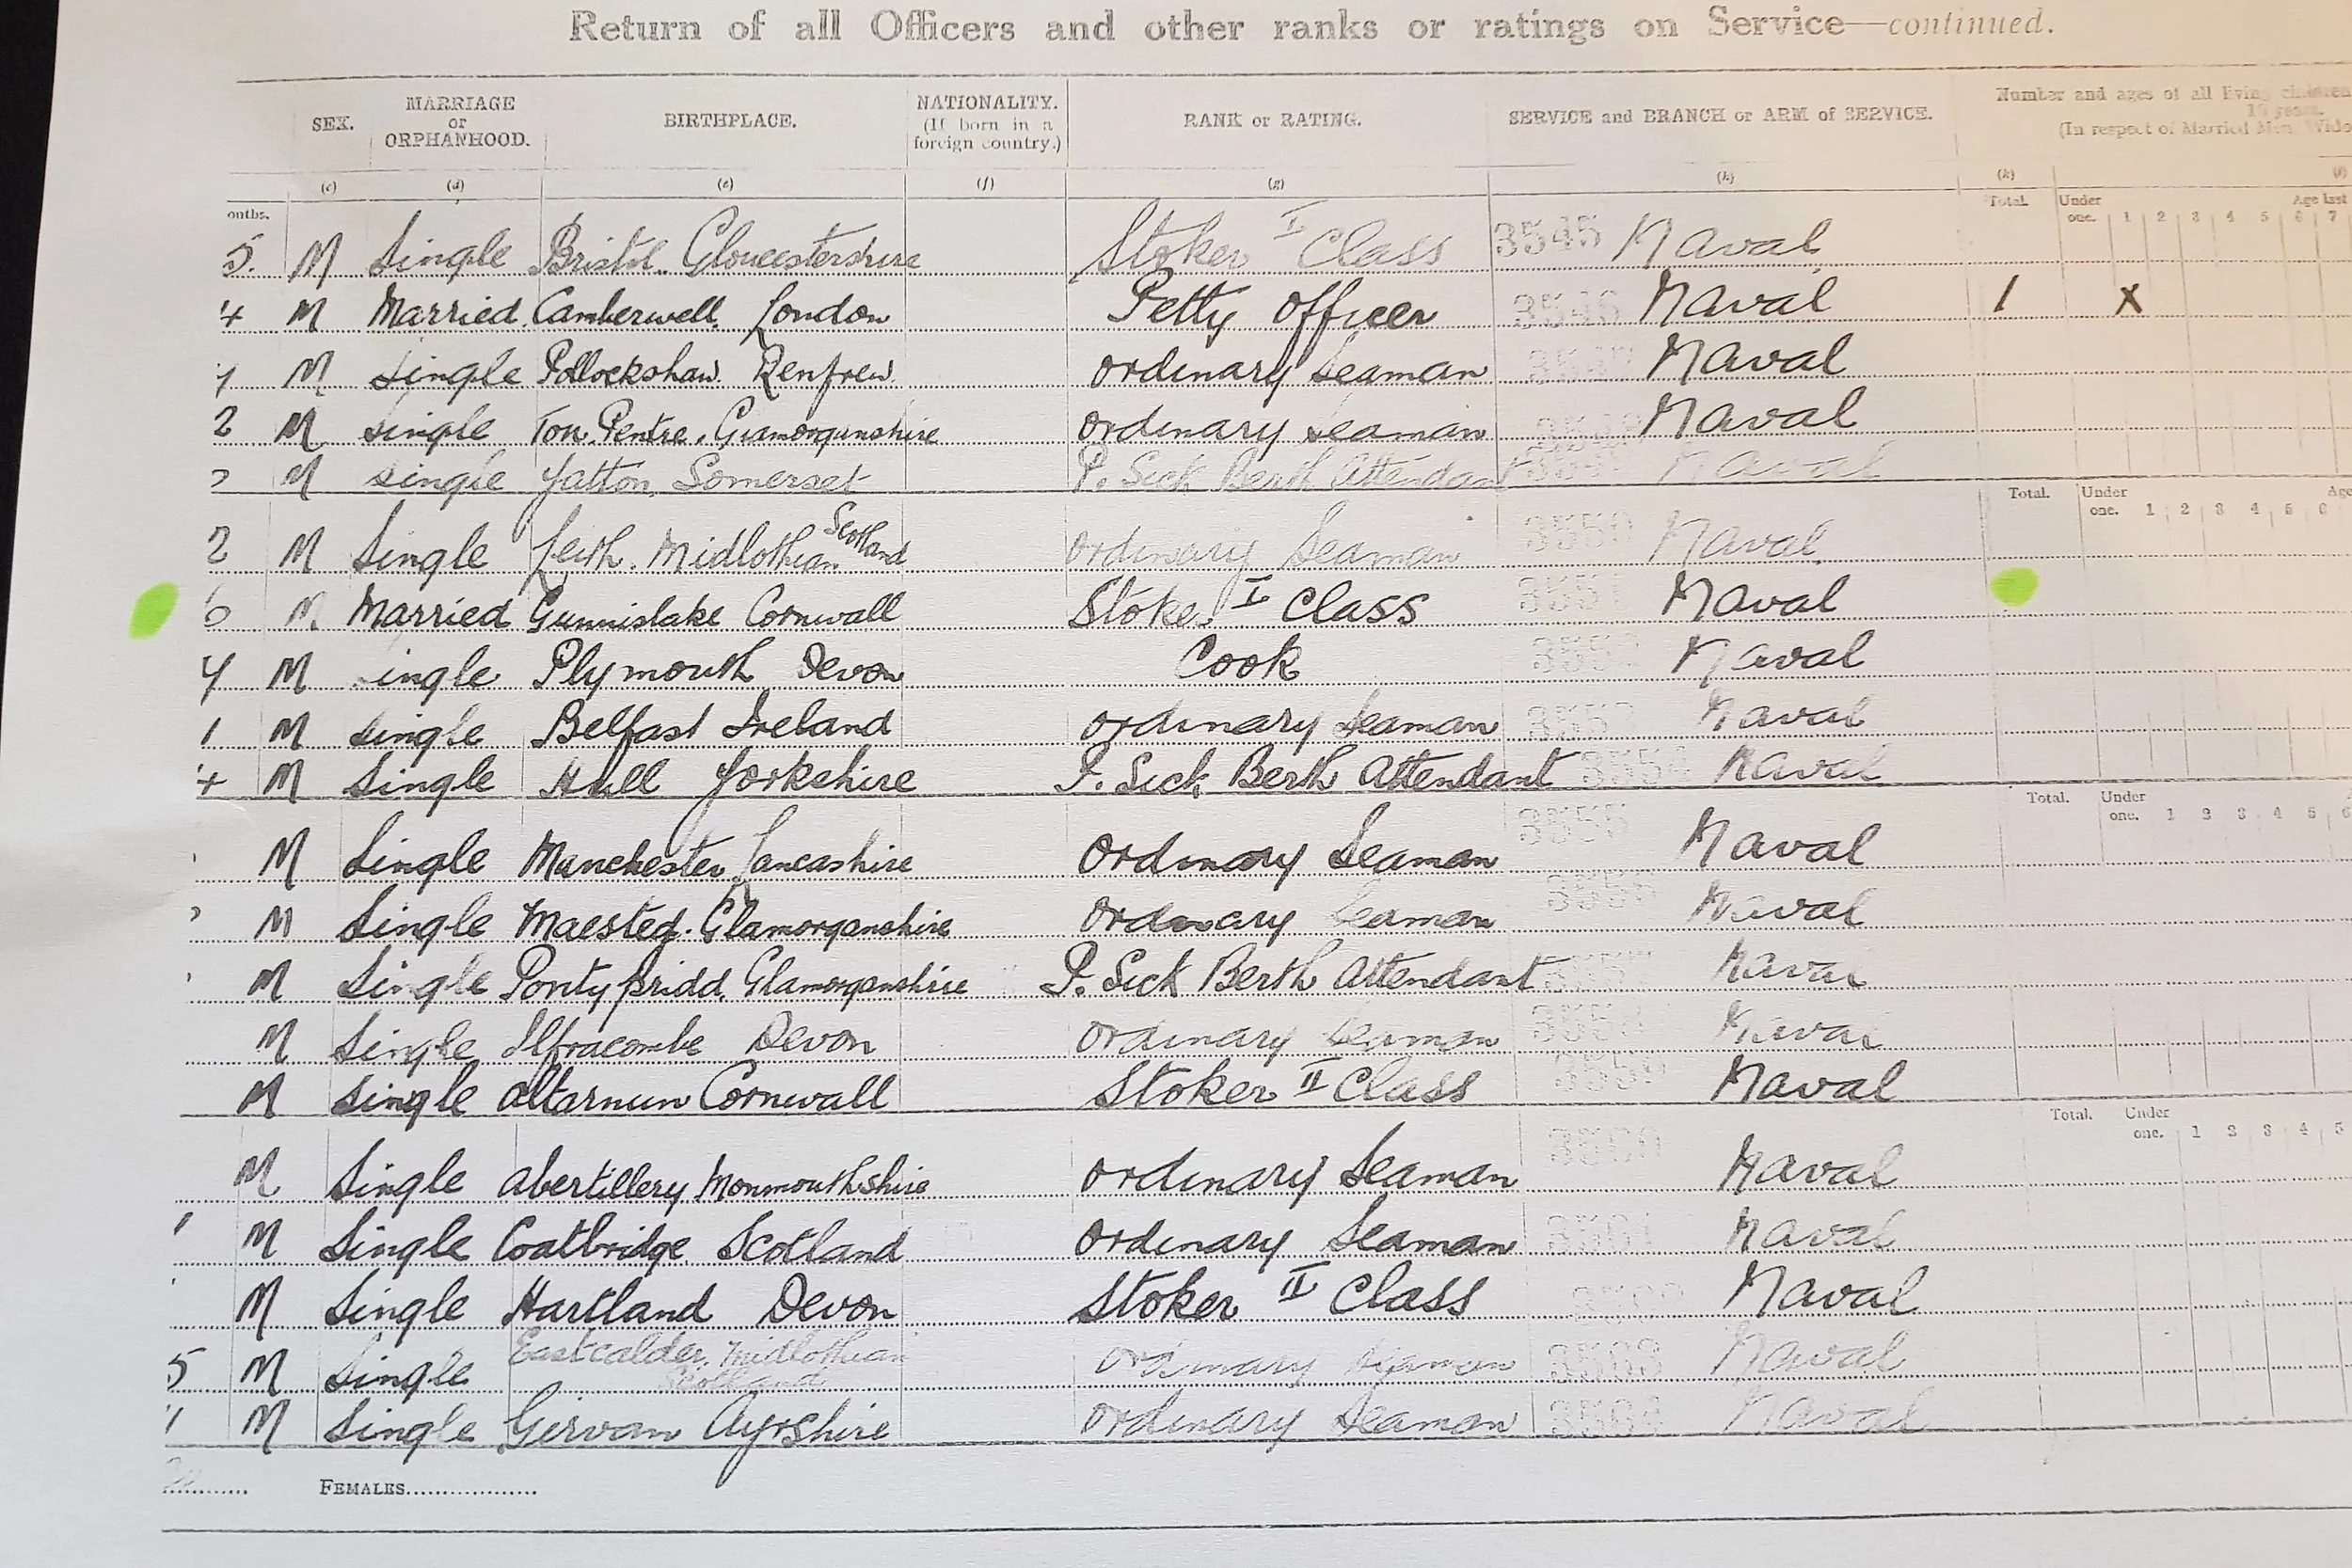 Return of all Officers and other ranks or ratings on Service—continued.
SEX. MARRIAGE or ORPHANHOOD. BIRTHPLACE. NATIONALITY. (If born in a foreign country.) RANK or RATING. SERVICE and BRANCH or ARM of SERVICE. Number and ages of all living children 16 years. (In respect of Married Men, Wido
(c) (d) (e) (f) (g) (h) (k) (l)
onths. Total. Under one. 1 2 3 4 5 6 7 Age last
5. M Single Bristol Gloucestershire Stoker I Class 3545 Naval
4 M Married Camberwell London Petty Officer 3546 Naval 1 X
M Single Pollockshaw. Renfrew. ordinary Seaman Naval
2 M single Ton. Pentre. Glamorganshire ordinary Seaman Naval
M single Yatton, Somerset P. Sick Berth Attendant Naval
Total. Under one. 1 2 3 4 5 6 Age
2 M Single Leith. Midlothian Scotland ordinary Seaman 3550 Naval
6 M Married Gunnislake Cornwall Stoker I Class 3551 Naval
4 M ingle Plymouth Devon Cook 3552 Naval
1 M single Belfast Ireland ordinary Seaman 3553 Naval
4 M Single Hull Yorkshire P. Sick Berth Attendant 3554 Naval
Total. Under one. 1 2 3 4 5 6
M Single Manchester Lancashire ordinary Seaman 3555 Naval
M Single Maesteg. Glamorganshire ordinary Seaman 3556 Naval
M Single Pontypridd, Glamorganshire P. Sick Berth Attendant Naval
M Single Ilfracombe Devon ordinary Seaman 3558 Naval
M single altarnun Cornwall Stoker II Class 3559 Naval
Total. Under one. 1 2 3 4 5
M Single abertillery Monmouthshire ordinary Seaman 3560 Naval
M Single Coatbridge Scotland ordinary Seaman 3561 Naval
M Single Hartland Devon Stoker II Class Naval
5 M Single Eastcalder, Midlothian Scotland ordinary Seaman 3563 Naval
M Single Girvan Ayrshire ordinary Seaman 3564 Naval
FEMALES